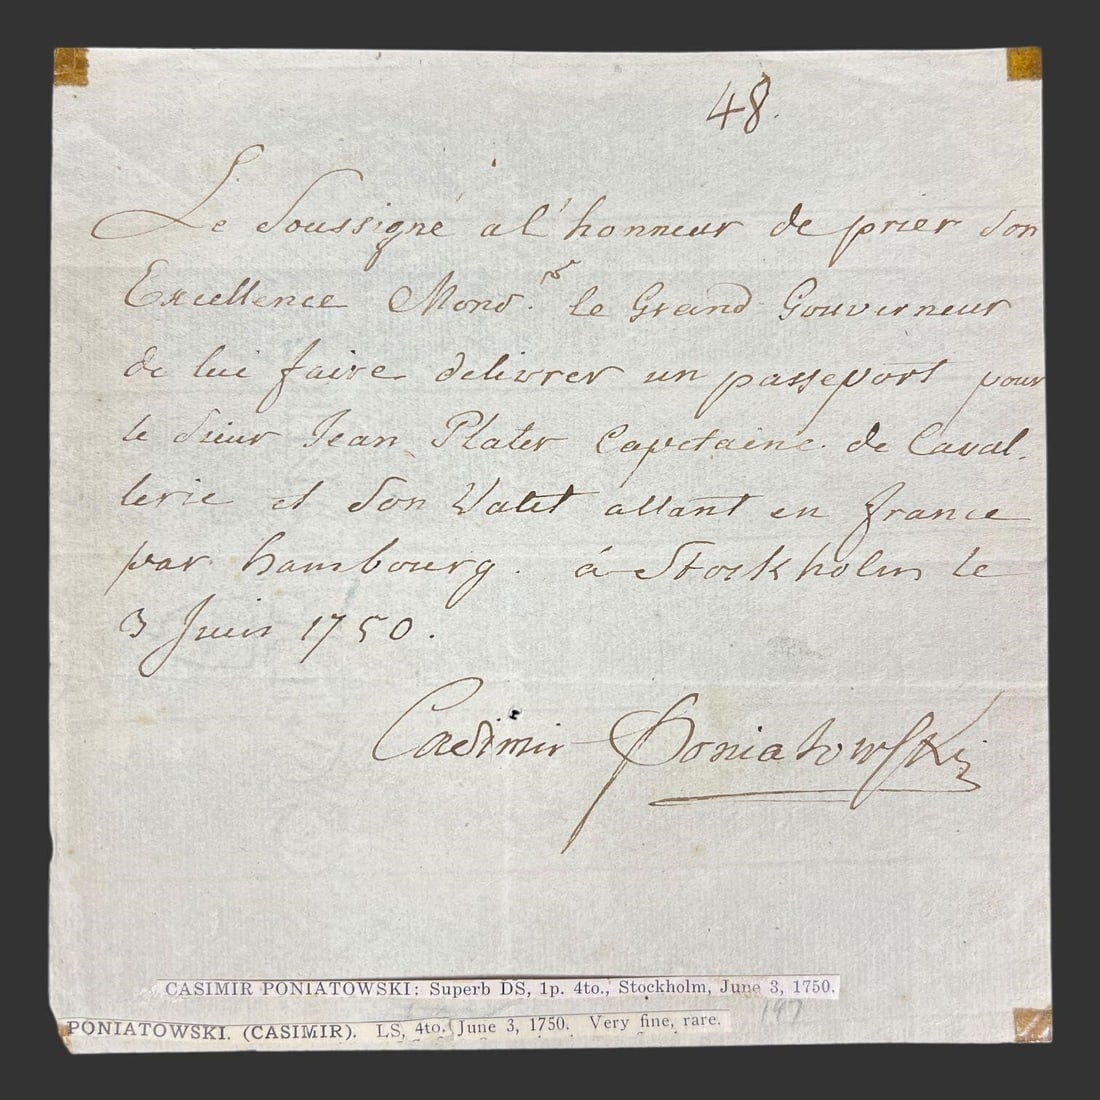 48.
Le Soussigné a l'honneur de prier Son
Excellence Mons.r le Grand Gouverneur
de lui faire delivrer un passeport pour
le Sieur Jean Plater Capitaine de Caval-
lerie et Son Valet allant en france
par hambourg. à Stockholm le
3 Juin 1750.
Casimir Poniatowski
CASIMIR PONIATOWSKI: Superb DS, 1p. 4to., Stockholm, June 3, 1750.
197
PONIATOWSKI. (CASIMIR). LS, 4to. June 3, 1750. Very fine, rare.